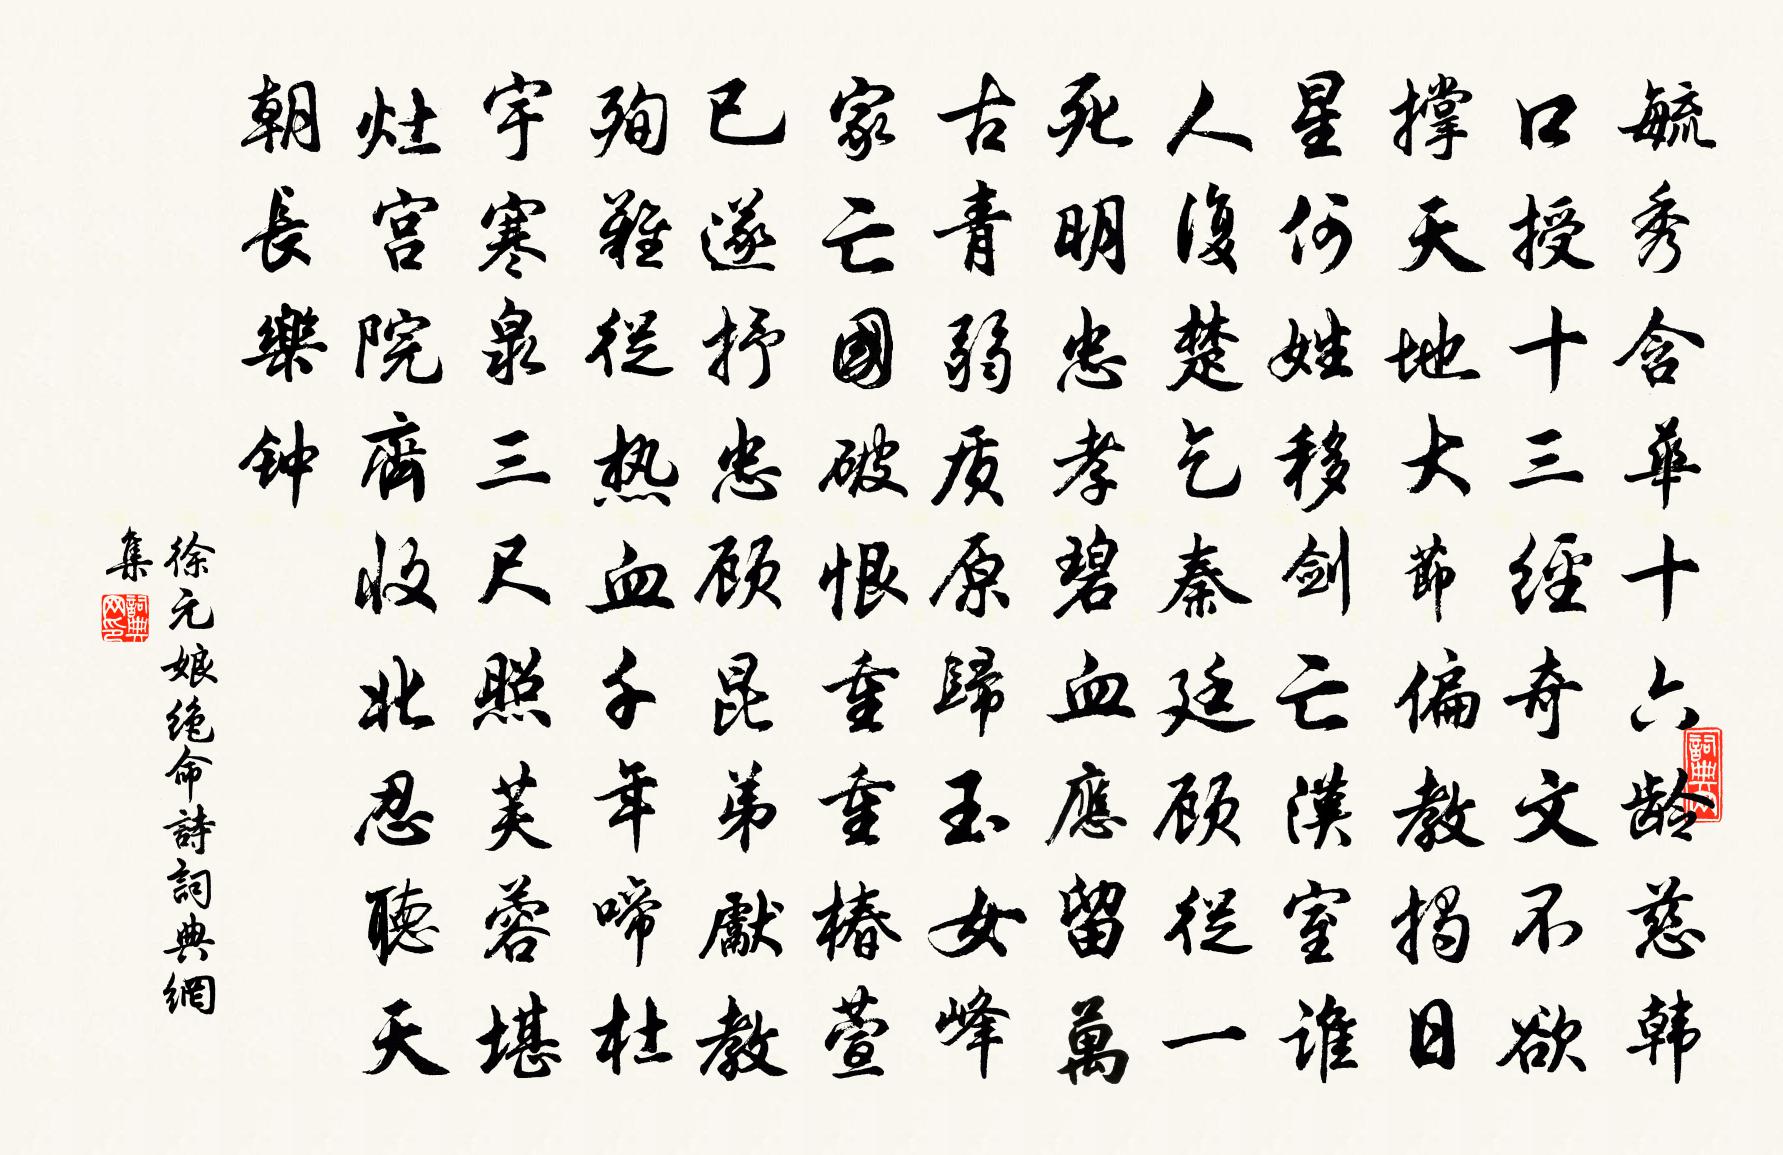 毓秀含華十六龄慈韩
口授十三經奇文不欲
撑天地大節偏教揭日
星何姓移剑亡漢室谁
人復楚乞秦廷顾從一
死明忠孝碧血應留萬
古青弱质原歸玉女峰
家亡國破恨重重椿萱
已遂抒忠顾昆弟獻教
殉難從热血千年啼杜
宇寒泉三尺照芙蓉堪
灶宫院齊收北忍聽天
朝長樂钟
徐元娘绝命詩詞典網
集
詞典網印